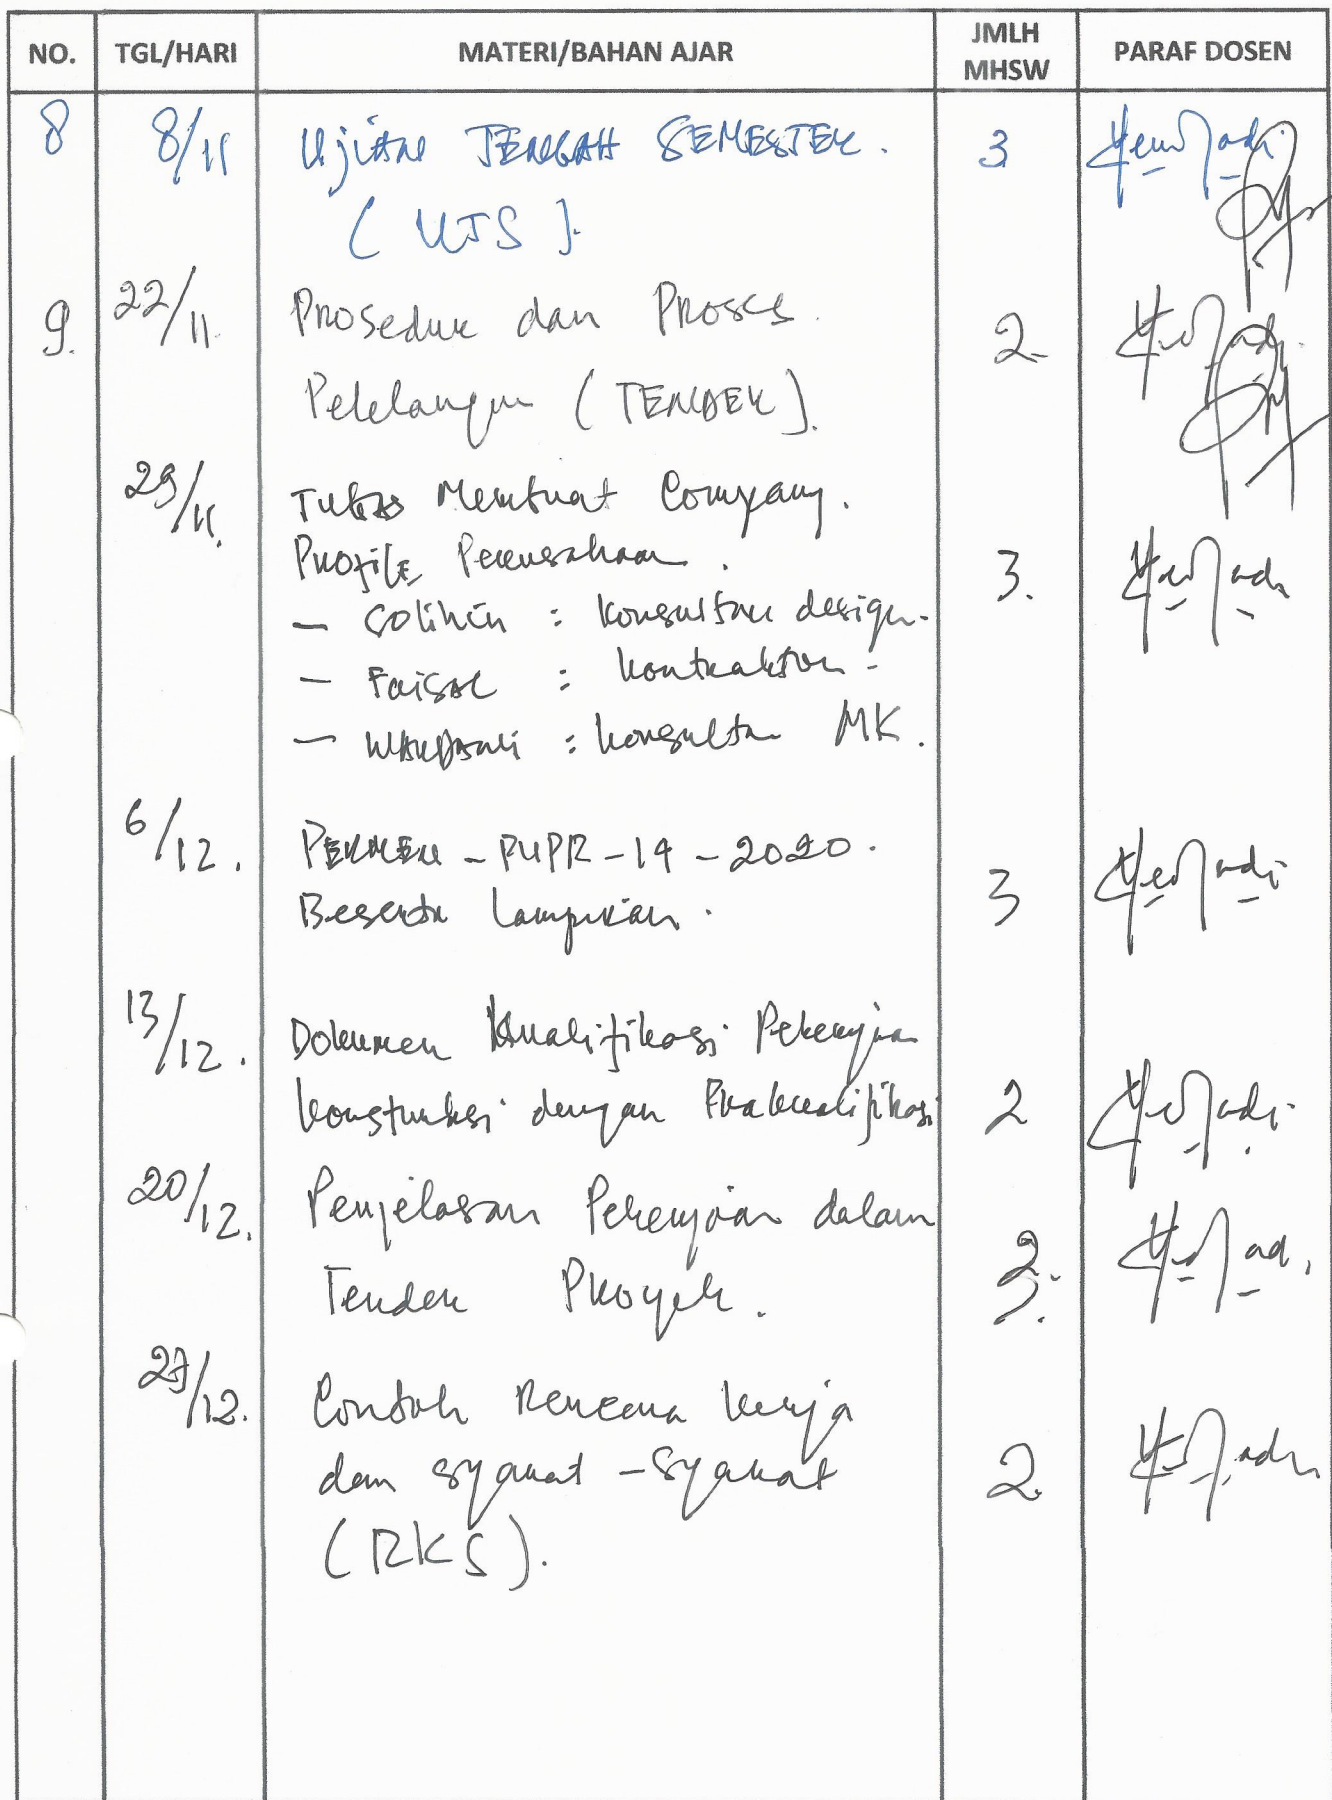 NO. TGL/HARI MATERI/BAHAN AJAR JMLH MHSW PARAF DOSEN
8 8/11 Ujian TENGAH SEMESTER. 3
(UTS).
9. 22/11. Prosedur dan Proses. 2.
Pelelangan (TENDER).
29/11. Tugas Membuat Company.
Profile Perusahaan. 3.
- Solihin : konsultan design.
- Faisal : kontraktor.
- : konsultan MK.
6/12. PERMEN-PUPR-14-2020.
Beserta Lampiran. 3
13/12. Dokumen Kualifikasi Pekerjaan
konstruksi dengan Prakualifikasi 2
20/12. Penjelasan Pekerjaan dalam
Tender Proyek. 3.
27/12. Contoh Rencana kerja
dan syarat-syarat 2
(RKS).